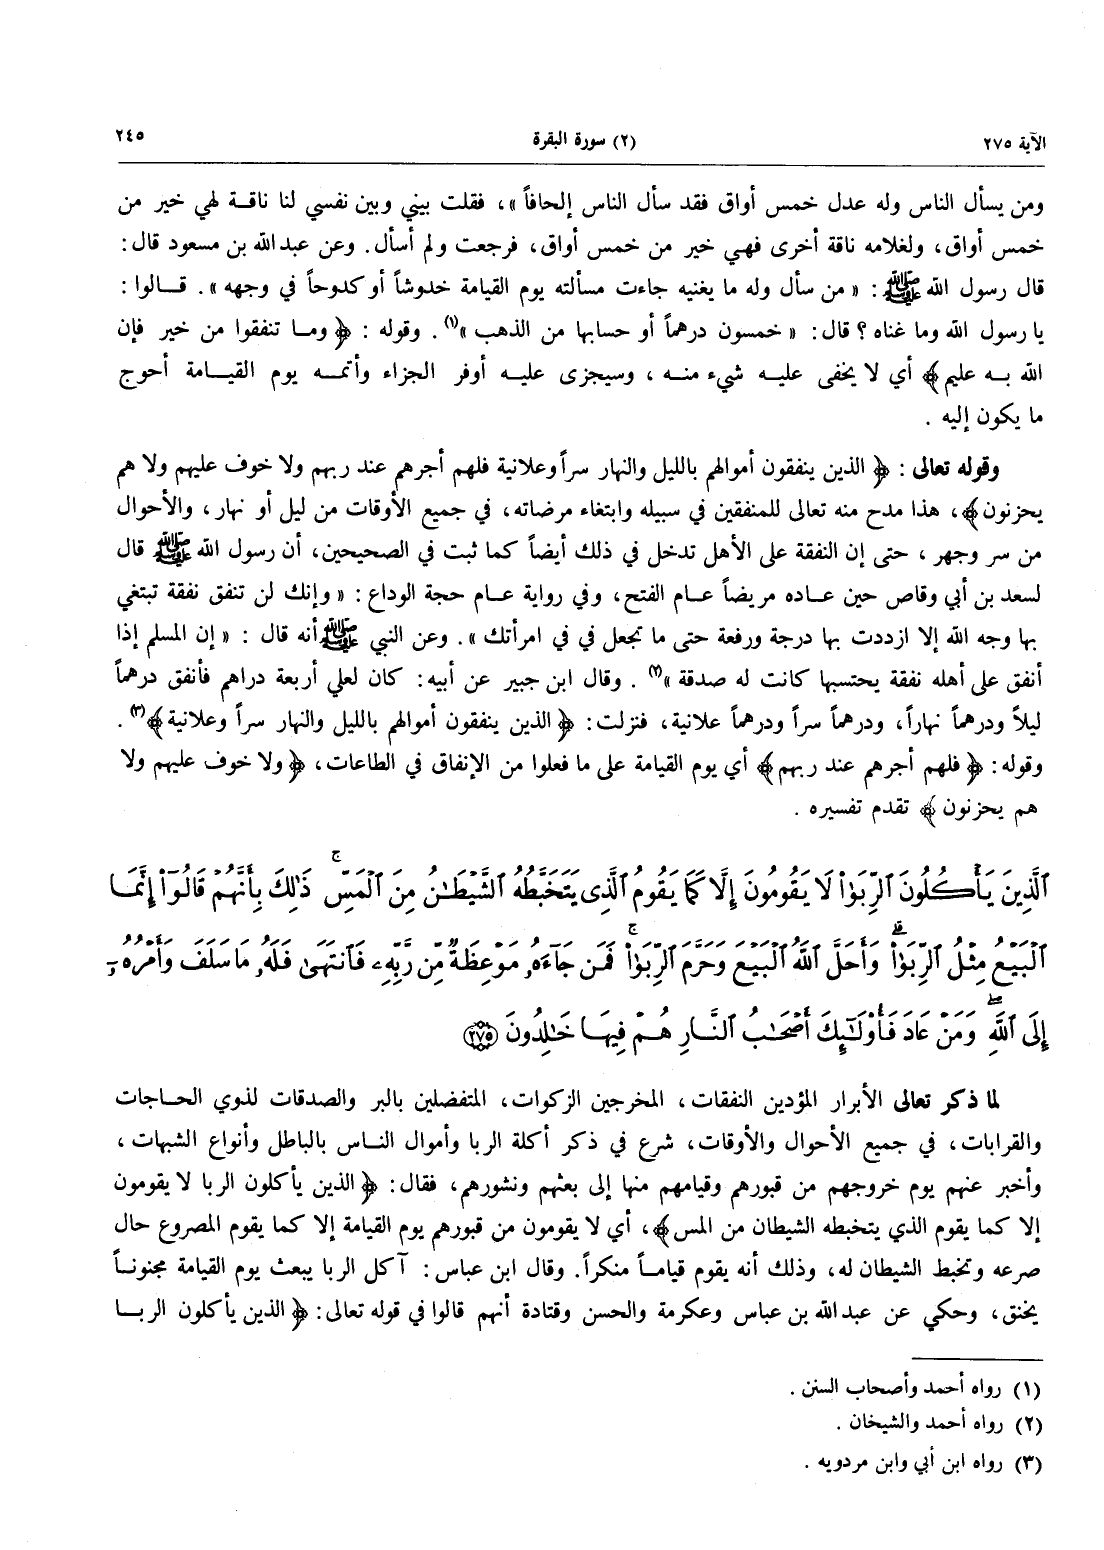 الآية ٢٧٥ (٢) سورة البقرة ٢٤٥
ومن يسأل الناس وله عدل خمس أواق فقد سأل الناس إلحافاً »، فقلت بيني وبين نفسي لنا ناقـة لهي خير من
خمس أواق، ولغلامه ناقة أخرى فهي خير من خمس أواق، فرجعت ولم أسأل. وعن عبدالله بن مسعود قال:
قال رسول الله ﷺ: « من سأل وله ما يغنيه جاءت مسألته يوم القيامة خدوشاً أو كدوحاً في وجهه ». قـالوا:
يا رسول الله وما غناه؟ قال: « خمسون درهماً أو حسابها من الذهب »(١). وقوله: ﴿ ومـا تنفقوا من خير فإن
الله بـه عليم﴾ أي لا يخفى عليـه شيء منـه، وسيجزى عليـه أوفر الجزاء وأتمـه يوم القيـامة أحوج
ما يكون إليه .
وقوله تعالى: ﴿ الذين ينفقون أموالهم بالليل والنهار سراً وعلانية فلهم أجرهم عند ربهم ولا خوف عليهم ولا هم
يحزنون﴾، هذا مدح منه تعالى للمنفقين في سبيله وابتغاء مرضاته، في جميع الأوقات من ليل أو نهار، والأحوال
من سر وجهر، حتى إن النفقة على الأهل تدخل في ذلك أيضاً كما ثبت في الصحيحين، أن رسول الله ﷺ قال
لسعد بن أبي وقاص حين عـاده مريضاً عـام الفتح، وفي رواية عـام حجة الوداع: « وإنك لن تنفق نفقة تبتغي
بها وجه الله إلا ازددت بها درجة ورفعة حتى ما تجعل في في امرأتك ». وعن النبي ﷺ أنه قال: « إن المسلم إذا
أنفق على أهله نفقة يحتسبها كانت له صدقة »(٢). وقال ابن جبير عن أبيه: كان لعلي أربعة دراهم فأنفق درهماً
ليلاً ودرهماً نهاراً، ودرهماً سراً ودرهماً علانية، فنزلت: ﴿ الذين ينفقون أموالهم بالليل والنهار سراً وعلانية﴾(٣).
وقوله: ﴿ فلهم أجرهم عند ربهم﴾ أي يوم القيامة على ما فعلوا من الإنفاق في الطاعات، ﴿ ولا خوف عليهم ولا
هم يحزنون﴾ تقدم تفسيره .
ٱلَّذِينَ يَأْكُلُونَ ٱلرِّبَوٰا۟ لَا يَقُومُونَ إِلَّا كَمَا يَقُومُ ٱلَّذِى يَتَخَبَّطُهُ ٱلشَّيْطَـٰنُ مِنَ ٱلْمَسِّ ۚ ذَٰلِكَ بِأَنَّهُمْ قَالُوٓا۟ إِنَّمَا
ٱلْبَيْعُ مِثْلُ ٱلرِّبَوٰا۟ ۗ وَأَحَلَّ ٱللَّهُ ٱلْبَيْعَ وَحَرَّمَ ٱلرِّبَوٰا۟ ۚ فَمَن جَآءَهُۥ مَوْعِظَةٌ مِّن رَّبِّهِۦ فَٱنتَهَىٰ فَلَهُۥ مَا سَلَفَ وَأَمْرُهُۥٓ
إِلَى ٱللَّهِ ۖ وَمَنْ عَادَ فَأُو۟لَـٰٓئِكَ أَصْحَـٰبُ ٱلنَّارِ هُمْ فِيهَا خَـٰلِدُونَ ٢٧٥
لما ذكر تعالى الأبرار المؤدين النفقات، المخرجين الزكوات، المتفضلين بالبر والصدقات لذوي الحـاجات
والقرابات، في جميع الأحوال والأوقات، شرع في ذكر أكلة الربا وأموال النـاس بالباطل وأنواع الشبهات،
وأخبر عنهم يوم خروجهم من قبورهم وقيامهم منها إلى بعثهم ونشورهم، فقال: ﴿ الذين يأكلون الربا لا يقومون
إلا كما يقوم الذي يتخبطه الشيطان من المس﴾، أي لا يقومون من قبورهم يوم القيامة إلا كما يقوم المصروع حال
صرعه وتخبط الشيطان له، وذلك أنه يقوم قيامـاً منكراً. وقال ابن عباس: آكل الربا يبعث يوم القيامة مجنونـاً
يخنق، وحكي عن عبدالله بن عباس وعكرمة والحسن وقتادة أنهم قالوا في قوله تعالى: ﴿ الذين يأكلون الربـا
(١) رواه أحمد وأصحاب السنن .
(٢) رواه أحمد والشيخان .
(٣) رواه ابن أبي وابن مردويه .